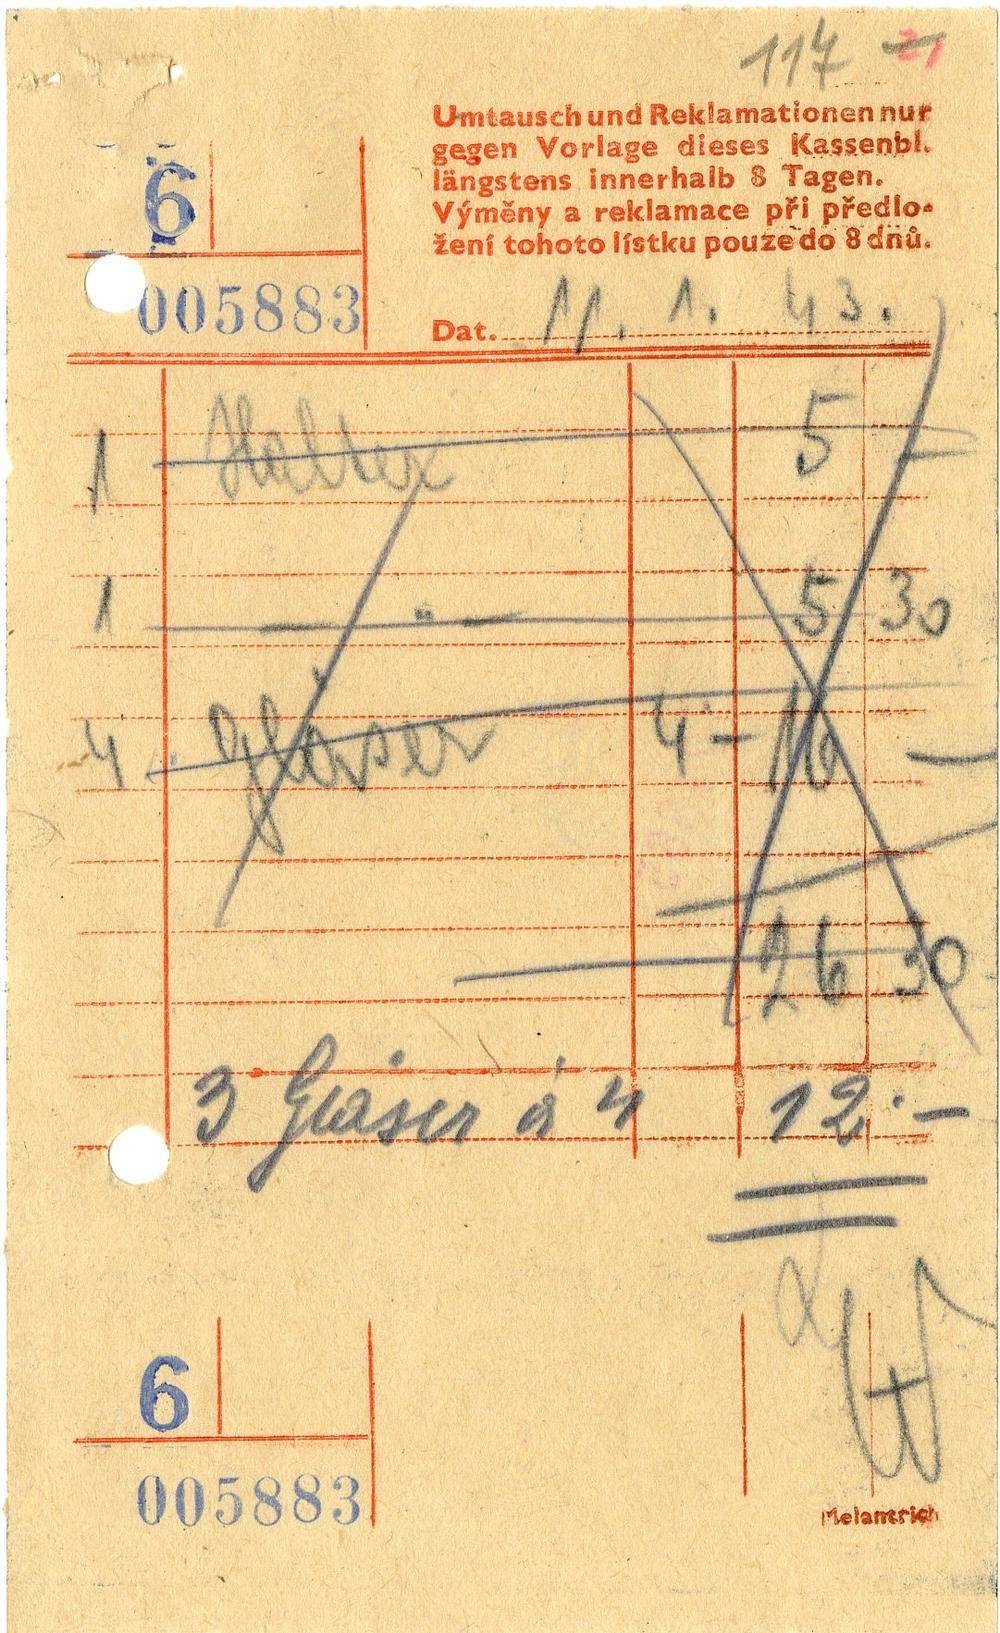 117 21
Umtausch und Reklamationen nur
gegen Vorlage dieses Kassenbl.
längstens innerhalb 8 Tagen.
Výměny a reklamace při předlo-
žení tohoto lístku pouze do 8 dnů.
6
005883
Dat. 11. 1. 43.
1 Halter 5 —
1 — " — 5 30
4 Gläser 4 - 16 —
26 30
3 Gläser à 4 12.—
6
005883
Melantrich